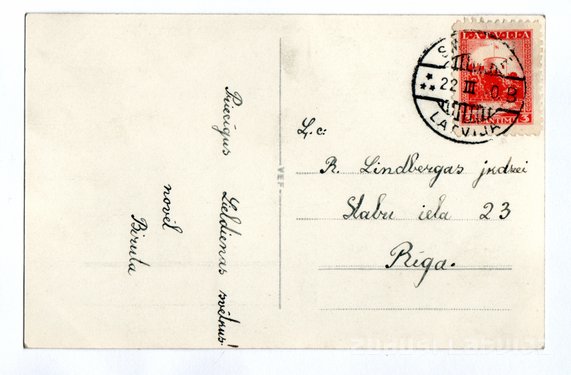 Priecīgus Lieldienas svētkus!
novēl
Biruta
VEF
LATVIJA
22 III
LATVIJA
3
L.c:
R. Lindbergas jkdzei
Stabu iela 23
Rīga.